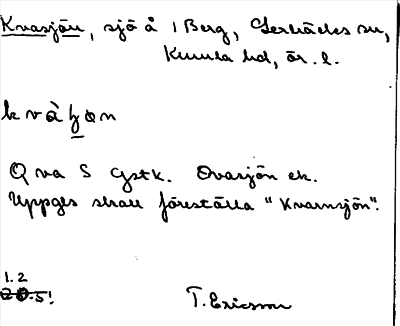 Kvasjön, sjö å 1 Berg, Gerbäcks sn,
Kumla hd, ör. l.
kvàʒon
Q va S Gstk. Ovasjön ek.
Uppges skall föreställa "Kvarnsjön".
1.2
20.5!
T. Ericsson